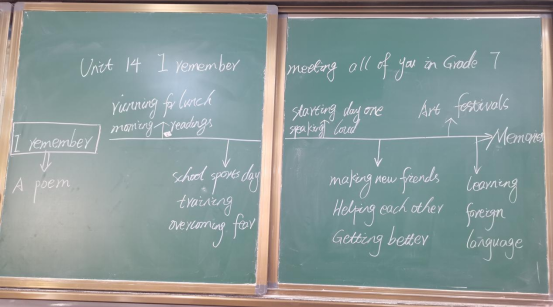 Unit 14 I remember meeting all of you in Grade 7
running for lunch
morning readings
I remember
A poem
school sports day
training
overcoming fear
starting day one
speaking loud
Art festivals
Memories
making new friends
Helping each other
Getting better
Learning
foreign
language